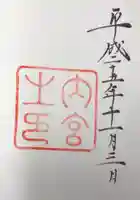 平成二五年十一月三日
内宮
之印